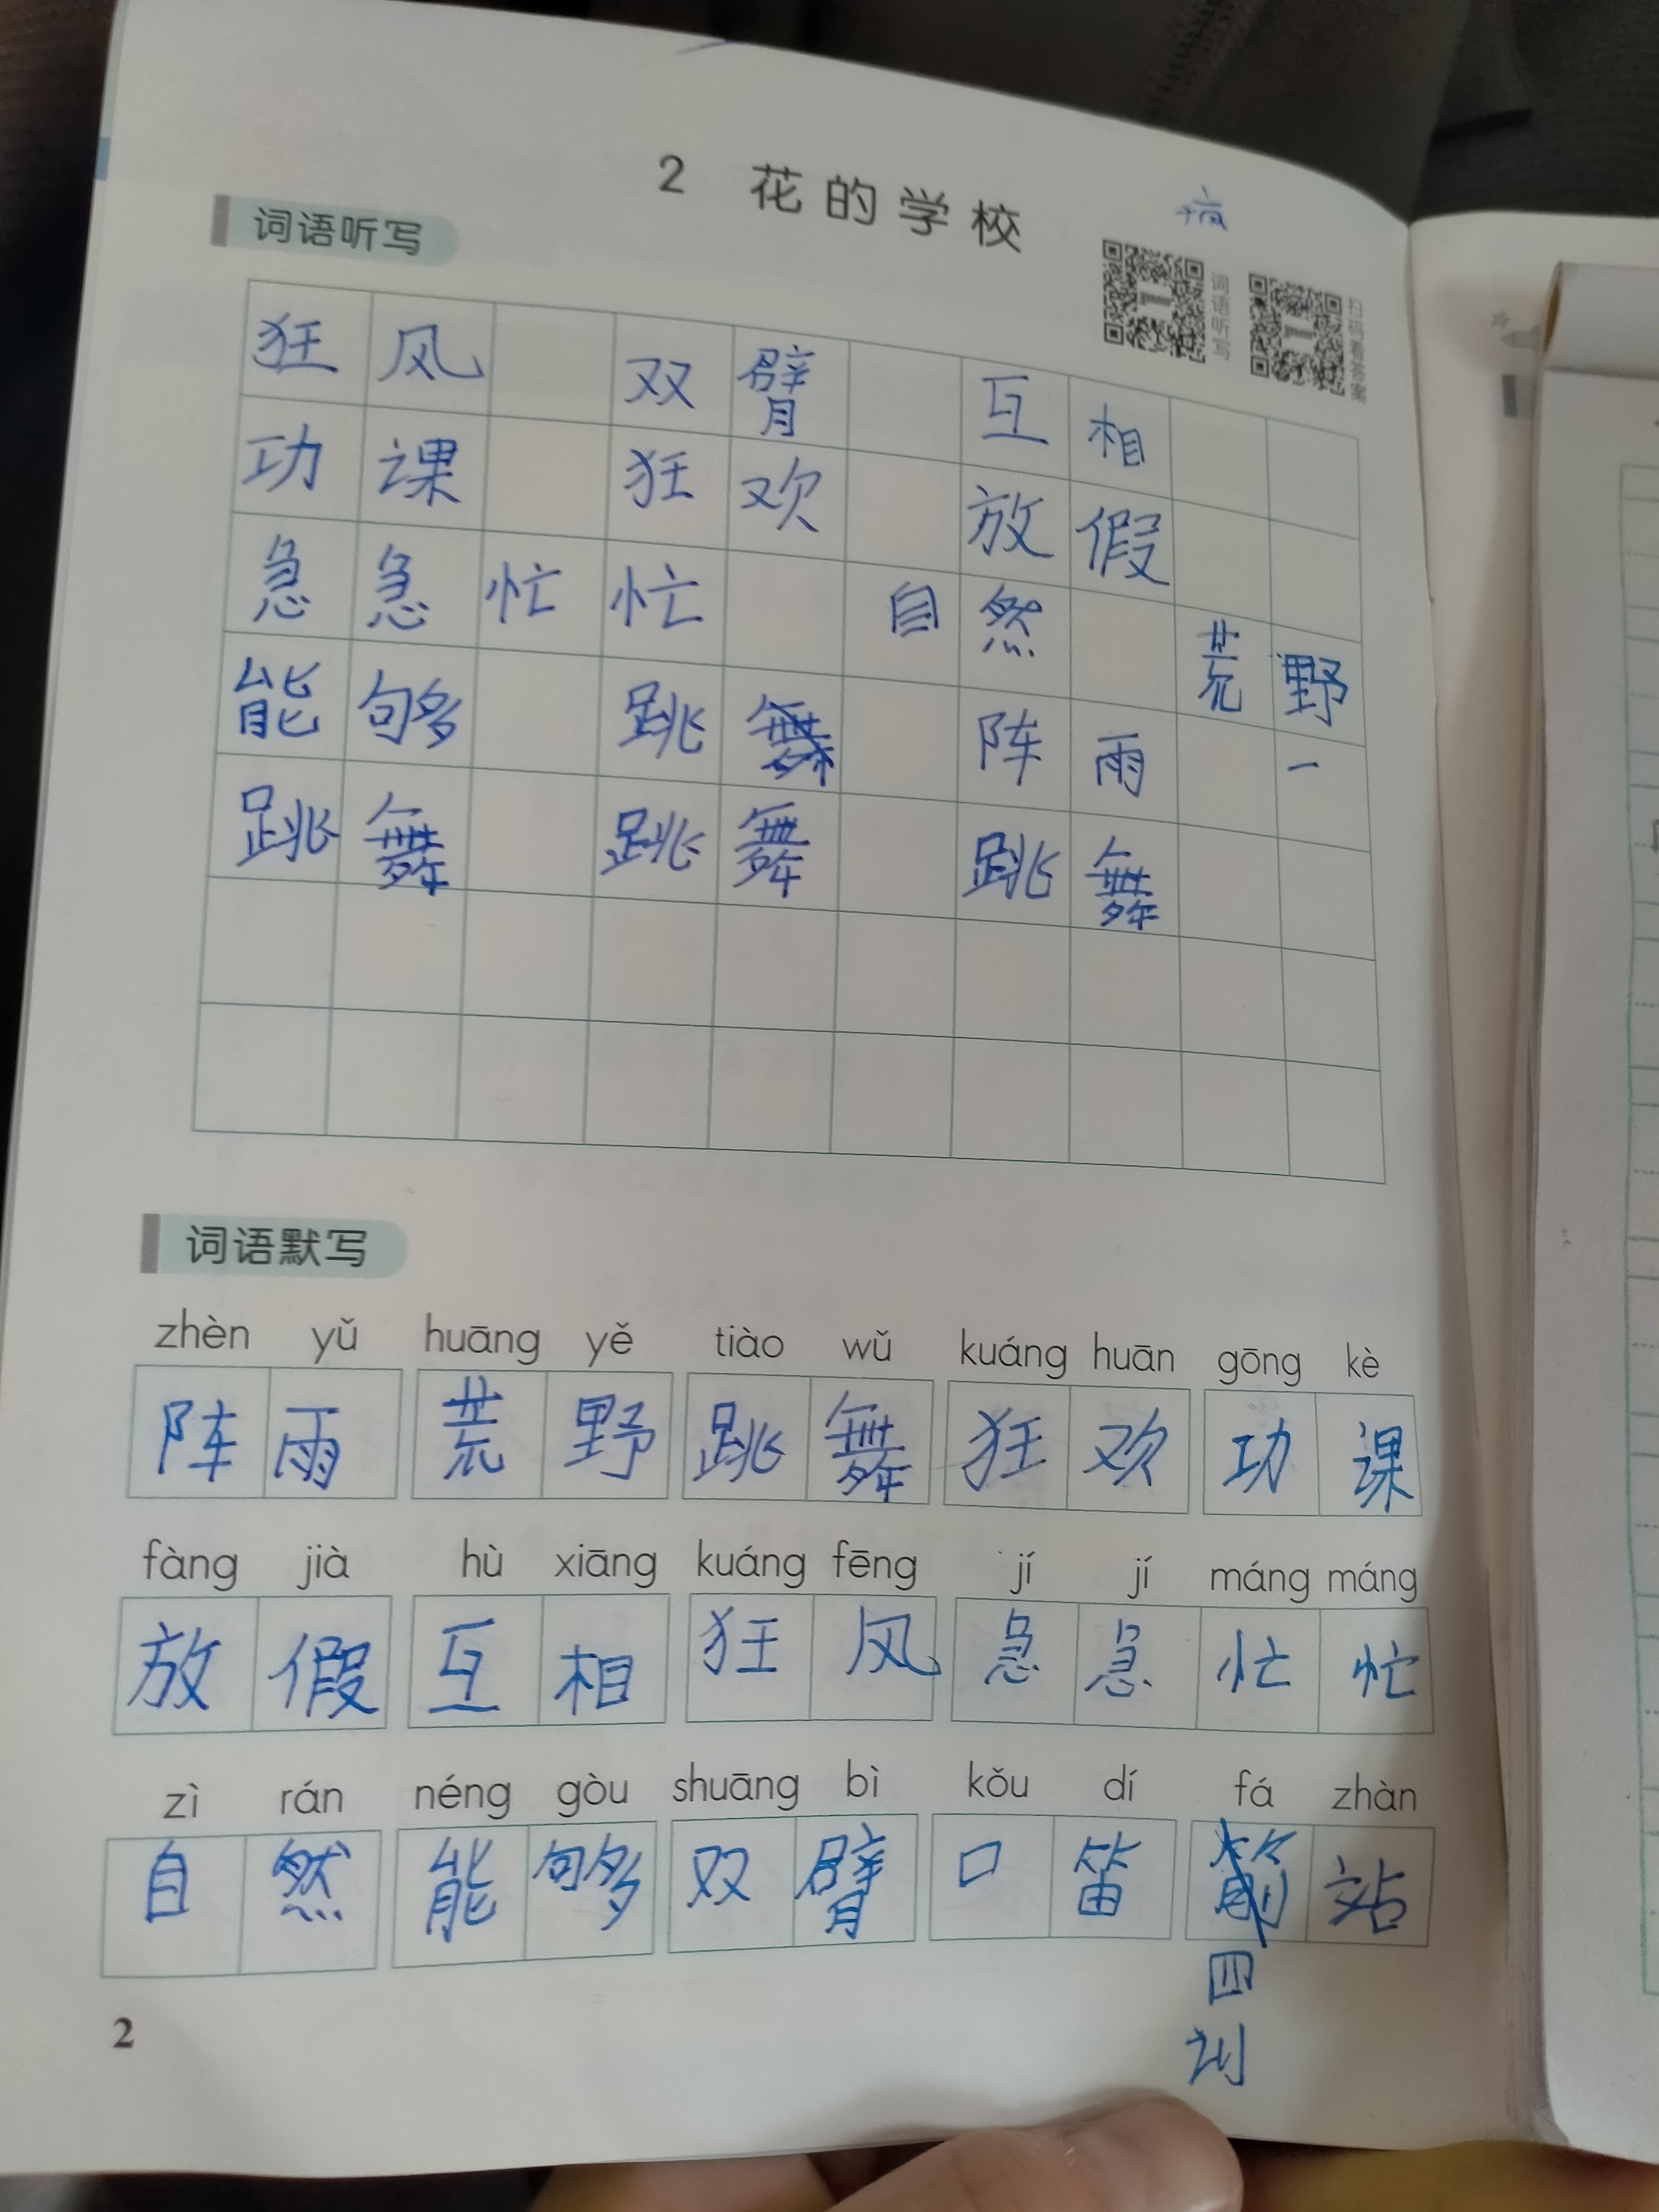 2 花的学校
词语听写
词语听写
扫码看答案
狂风 双臂 互相
功课 狂欢 放假
急急忙忙 自然 荒野
能够 跳舞 阵雨 一
跳舞 跳舞 跳舞
词语默写
zhèn yǔ huāng yě tiào wǔ kuáng huān gōng kè
阵雨 荒野 跳舞 狂欢 功课
fàng jià hù xiāng kuáng fēng jí jí máng máng
放假 互相 狂风 急急忙忙
zì rán néng gòu shuāng bì kǒu dí fá zhàn
自然 能够 双臂 口笛 站
四
2